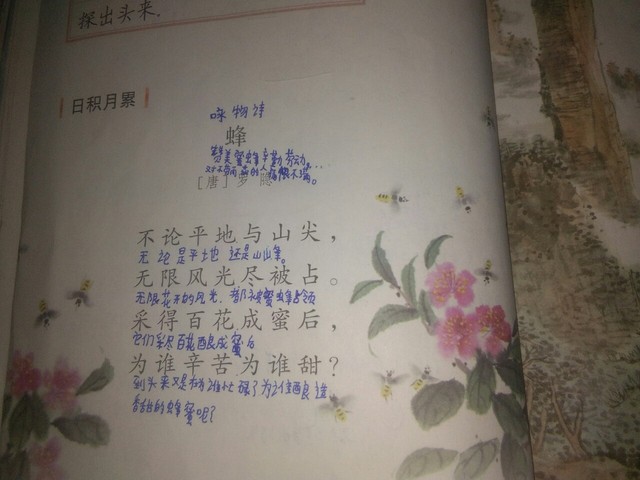 探出头来.
日积月累
咏物诗
蜂
赞美蜜蜂辛勤劳动。
对不劳而获的人痛恨不满。
[唐] 罗隐
不论平地与山尖，
无论是平地 还是山峰。
无限风光尽被占。
无限花木的风光. 都被蜜蜂占领
采得百花成蜜后，
它们采尽百花酿成蜜后
为谁辛苦为谁甜？
到头来又是在为谁忙碌了为谁酿造
香甜的蜂蜜呢？